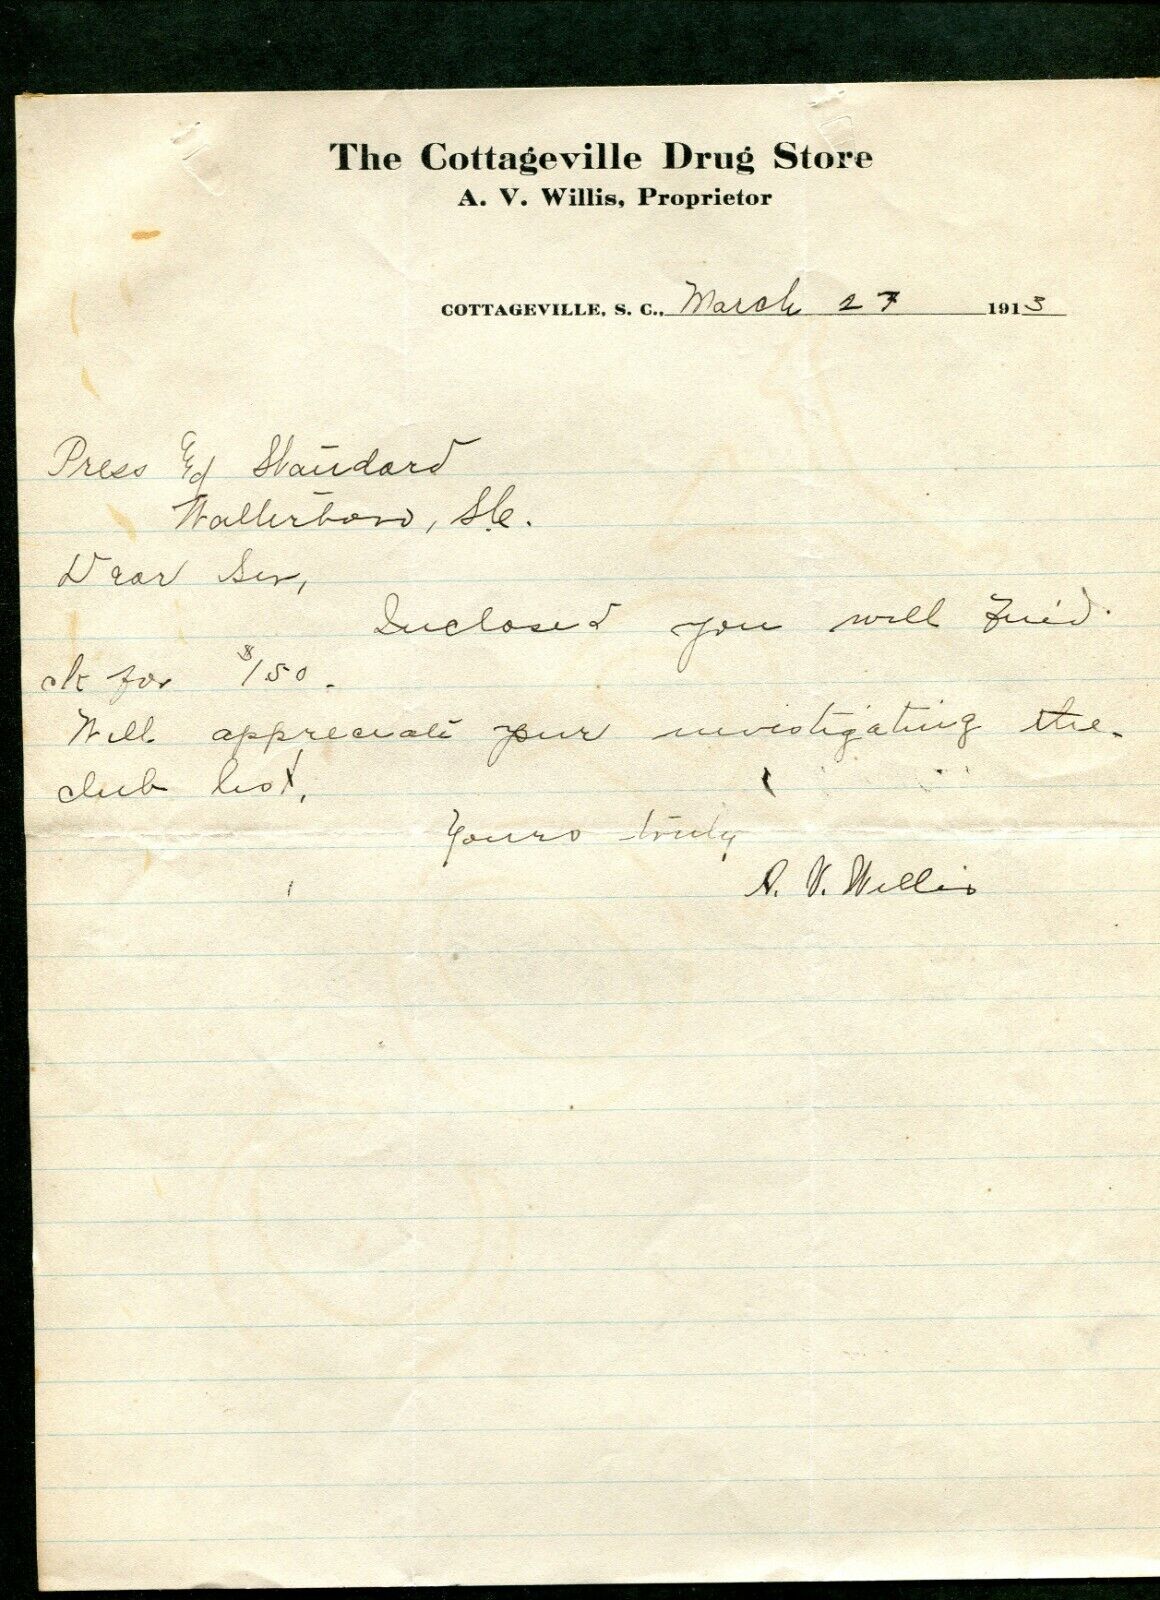 The Cottageville Drug Store
A. V. Willis, Proprietor
COTTAGEVILLE, S. C., March 27 1913
Press & Standard
Walterboro, S.C.
Dear Sir,
Inclosed you will find
ck for $150.
Will appreciate your investigating the
club list.
Yours truly
A. V. Willis